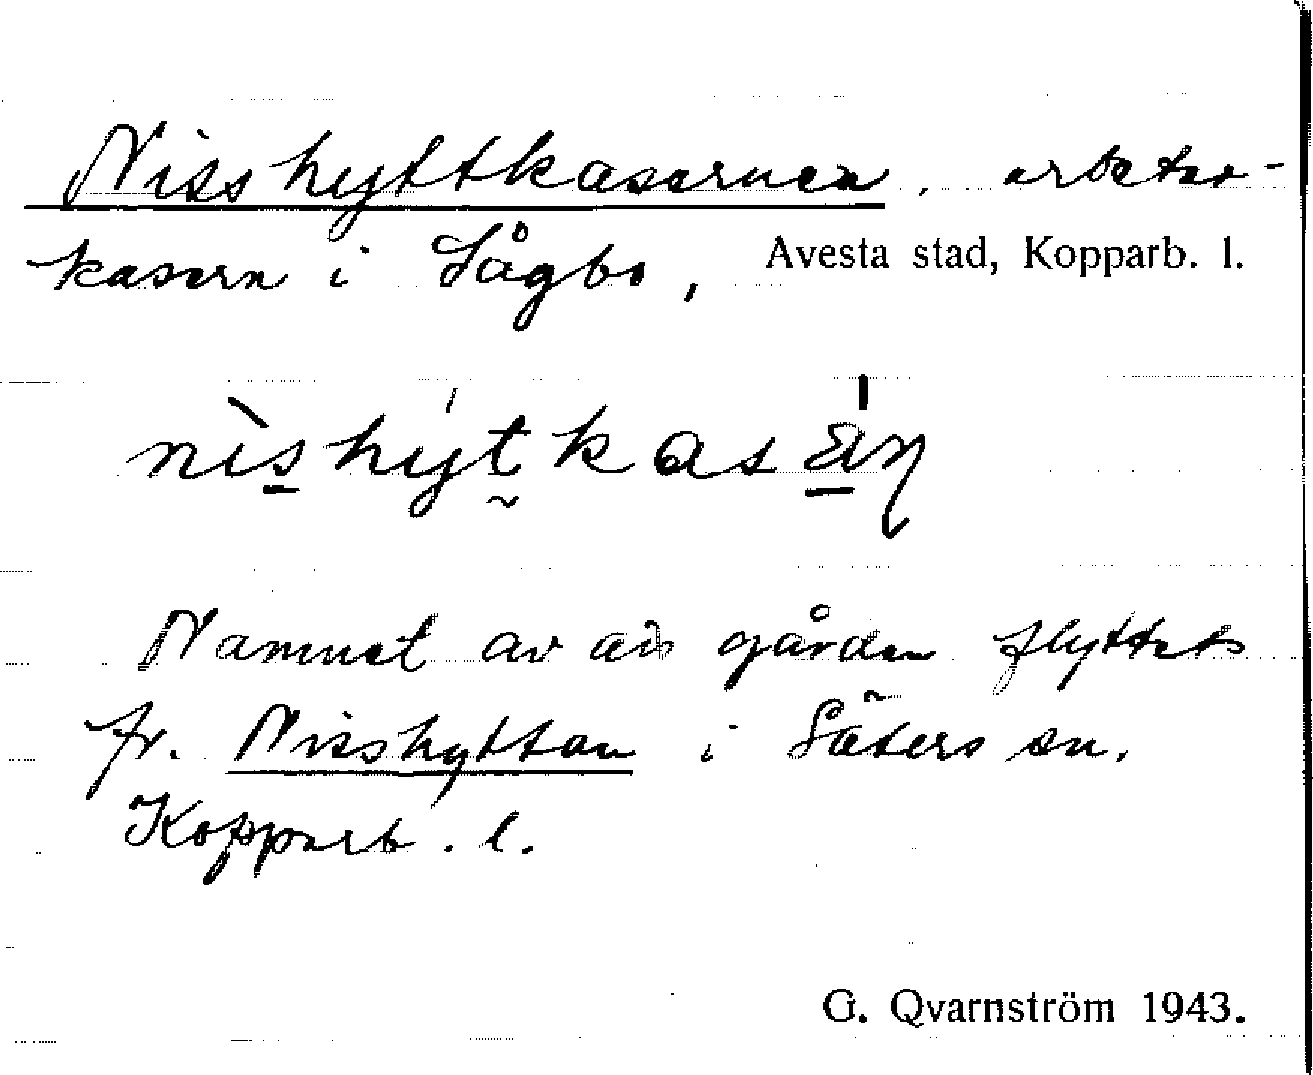 Nisshyttkasernen, arbetar-
kasern i Sågbo, Avesta stad, Kopparb. l.
nishytkasän
Namnet av att gården flyttats
fr. Nisshyttan i Säters sn.
Kopparb. l.
G. Qvarnström 1943.